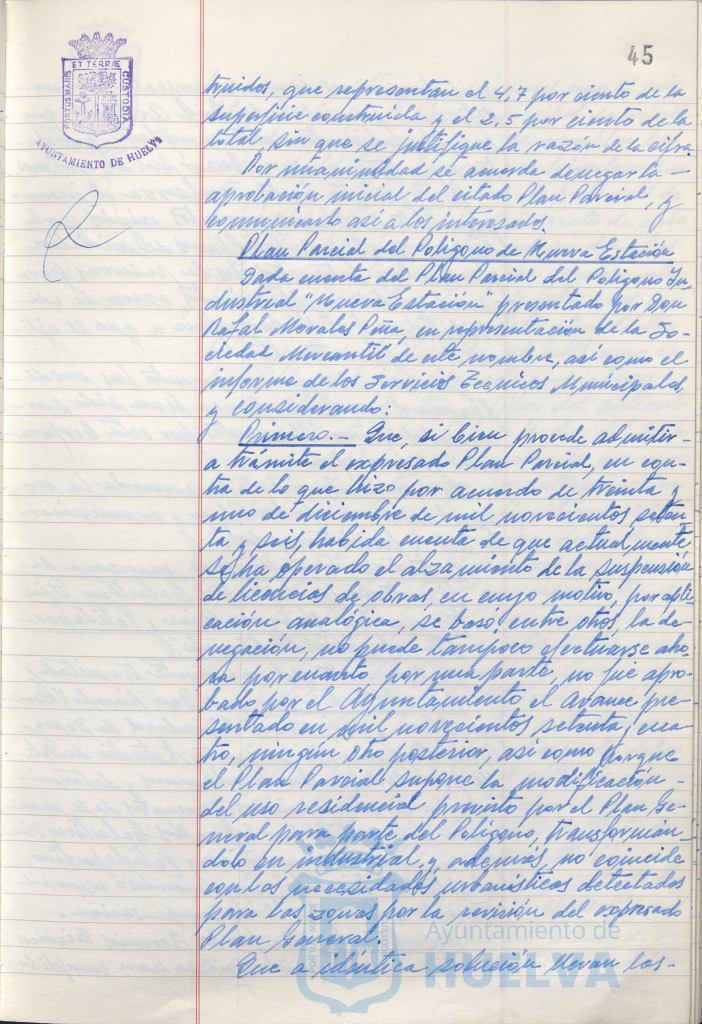 45
ET TERRÆ
PORTUS MARIS
CUSTODIA
AYUNTAMIENTO DE HUELVA
truidos, que representan el 4,7 por ciento de la
superficie construida y el 2,5 por ciento de la
total, sin que se justifique la razón de la cifra.
Por unanimidad se acuerda denegar la -
aprobación inicial del citado Plan Parcial, y
comunicarlo así a los interesados.
Plan Parcial del Polígono de Nueva Estación
Dada cuenta del Plan Parcial del Polígono In-
dustrial "Nueva Estación" presentado por Don
Rafael Morales Peña, en representación de la So-
ciedad Mercantil de este nombre, así como el
informe de los Servicios Tecnicos Municipales,
y considerando:
Primero.- Que, si bien procede admitir -
a trámite el expresado Plan Parcial, en con-
tra de lo que hizo por acuerdo de treinta y
uno de diciembre de mil novecientos seten-
ta y seis, habida cuenta de que actualmente
se ha operado el alzamiento de la suspensión
de licencias de obras, en cuyo motivo, por apli-
cación analógica, se basó entre otros la de-
negación, no puede tampoco efectuarse aho-
ra por cuanto, por una parte, no fue apro-
bado por el Ayuntamiento el Avance, pre-
sentado en mil novecientos setenta y cua-
tro, ningún otro posterior, así como porque
el Plan Parcial supone la modificación -
del uso residencial previsto por el Plan Ge-
neral para parte del Polígono, transformán-
dolo en industrial, y además, no coincide
con las necesidades urbanísticas detectadas
para las zonas por la revisión del expresado
Plan General.
Que a idéntica solución llevan los -
Ayuntamiento de
HUELVA